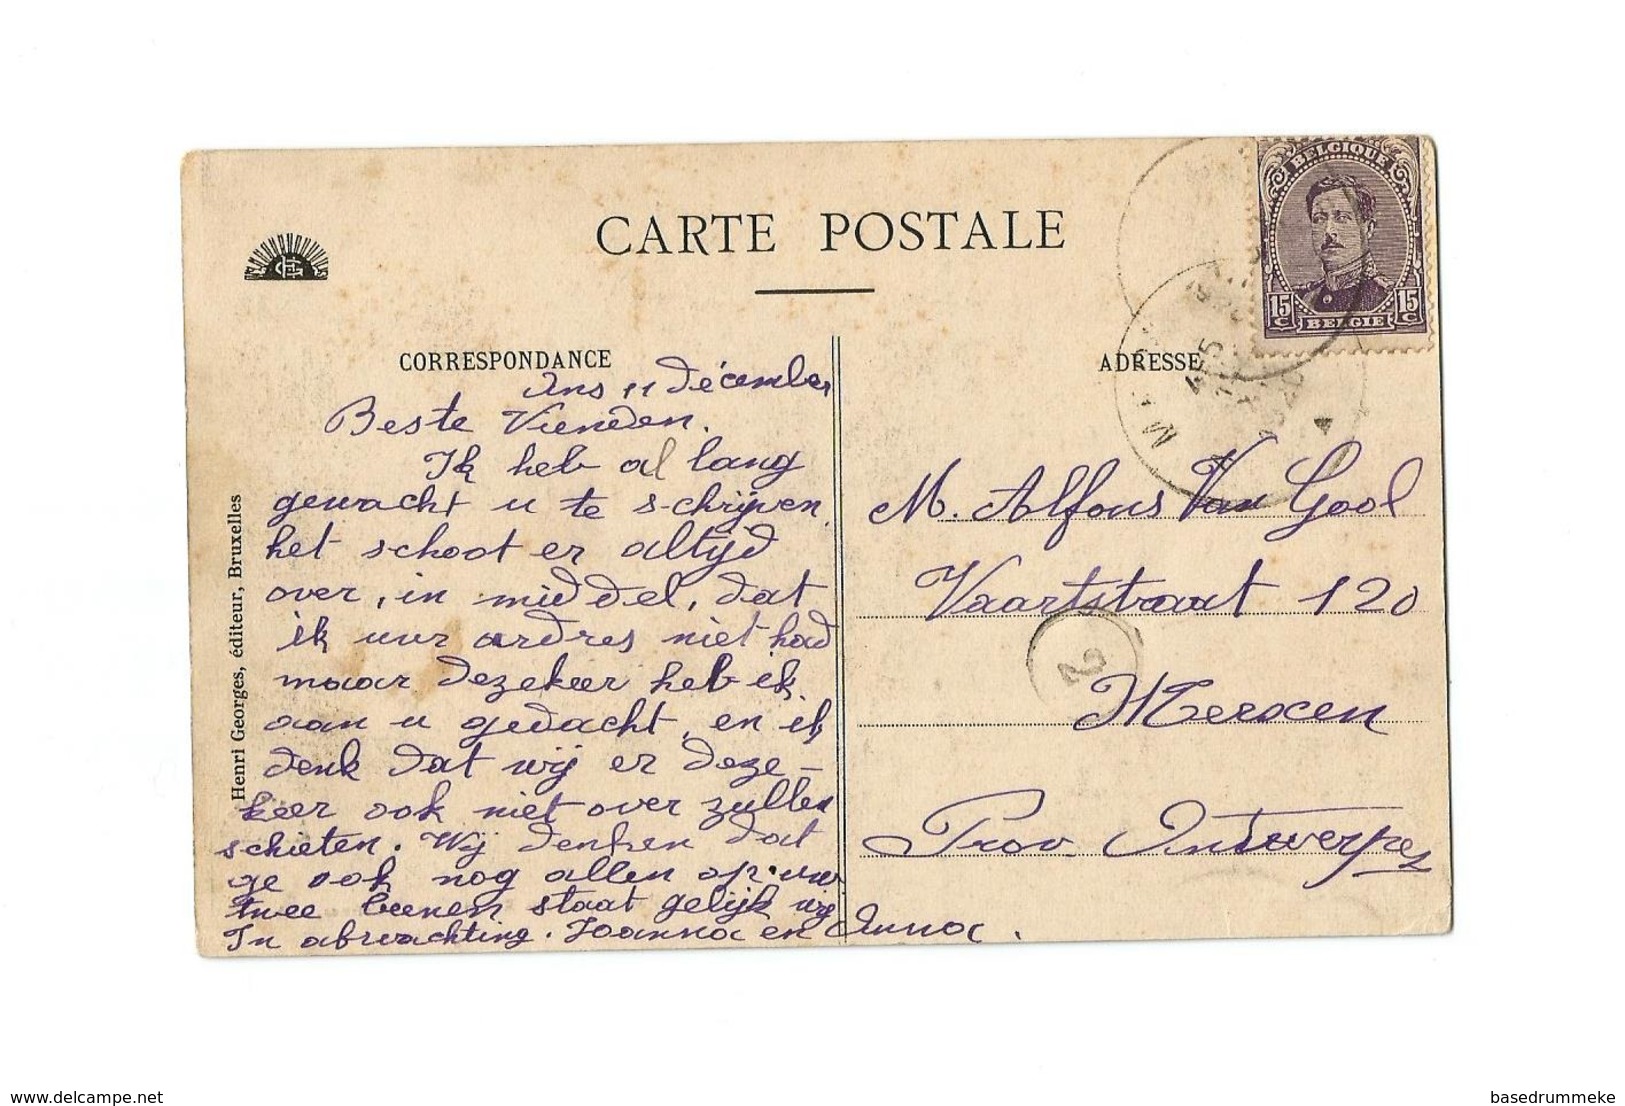 CARTE POSTALE
CORRESPONDANCE
ADRESSE
Henri Georges, éditeur, Bruxelles
BELGIQUE
15 C
15 C
BELGIE
Ans 11 décember
Beste Vrienden.
Ik heb al lang
gewacht u te schrijven.
het schoot er altijd
over, in middel, dat
ik uwr ardres niet had
maar dezekeer heb ik
aan u gedacht, en ik
denk dat wij er deze-
keer ook niet over zullen
schieten. Wij denken dat
ge ook nog allen op uw
twee beenen staat gelijk wij
In abwachting. Joanna en Anna.
M. Alfons Van Gool
Vaartstraat 120
2
Merxen
Prov. Antwerpen
delcampe.net
basedrummeke